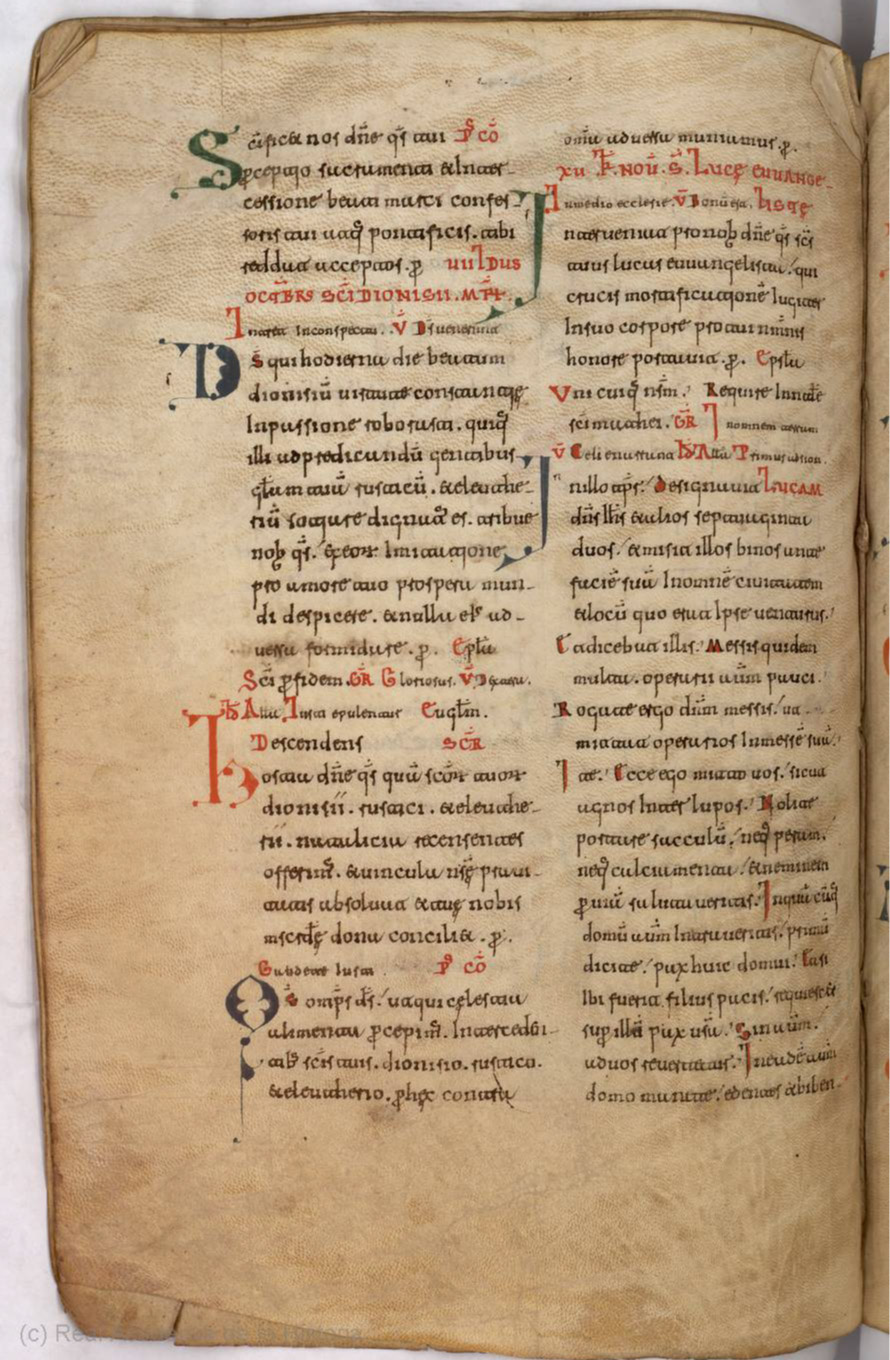 Sc̄ificet nos dn̄e q̄s tui Ꝑ cō
ꝑceptio sacramenti & Inter-
cessione beati marci confes-
soris tui atq; pontificis. tibi
reddat acceptos. ꝑ VII IDUS
OCTB̄RS SCĪ DIONISII. MR̄.
Intret Inconspectu. V̄ Ds̄ uenerunt
Ds̄ qui hodierna die beatum
dionisiū uirtute constantie
Inpassione roborasti. quiq;
illi adpredicandū gentibus
gl̄am tuā rusticū. & eleuthe-
riū sociare dignatus es. tribue
nob̄ q̄s. & eorum Imitatione
pro amore tuo prospera mun-
di despicere. & nulla ei' ad-
uersa formidare. ꝑ. Epl̄a
Scī ꝑfidem. GR̄ Gloriosus. V̄ Dextera.
Allā. Iusti epulentur Eugl̄m.
Descendens SCR̄
Hostia dn̄e q̄s quā scōrum tuorum
dionisii. rustici. & eleuthe-
rii. nataliciā recensentes
offerim'. & uincula nr̄ę praui-
tatis absoluat & tuę nobis
mīsc̄dię dona conciliet. ꝑ.
Gaudete Iusti. Ꝑ cō
Qs̄ omp̄s ds̄. ut qui cęlestia
alimenta ꝑcepim'. Intercedn-
tib; scīs tuis. dionisio. rustico.
& eleutherio. ꝑ hęc contra
omīa aduersa muniamus. ꝑ.
XV K̄. NOV̄. S̄. LUCĘ EUUANGE-
Inmedio ecclesie. V̄ Bonū est. LISTĘ
Interueniat pro nob̄ dn̄e q̄s scs̄
tuus lucas euuangelista. qui
crucis mortificationē Iugiter
Insuo corpore pro tui nōminis
honore portauit. ꝑ. Epl̄a
Vnicuiq; nr̄m. Require Innatl̄e
scī mathei. GR̄ Innomnem terram
V̄ Celi enarrant Allā Primus ad sion.
Inillo tp̄r. Designauit LUCAM
dn̄s Ih̄s & alios septuaginta
duos. & misit illos binos ante
faciē suā Inomnē ciuitatem
& locū quo erat Ipse uenturus.
Et dicebat illis. Messis quidem
multa. operarii autem pauci.
Rogate ergo dn̄m messis. ut
mittat operarios Inmessē suā.
Ite. Ecce ego mitto uos. sicut
agnos Inter lupos. Nolite
portare sacculū. neq; peram.
neq; calciamenta. & neminem
ꝑ uiā salutaueritis. Inquācūq;
domū autem Intraueritis. primū
dicite. pax huic domui. Et si
Ibi fuerit filius pacis. requiescet
suꝑ illā pax ur̄a. Sin autem.
ad uos reuertetur. In eadē autem
domo manete. edentes & biben-